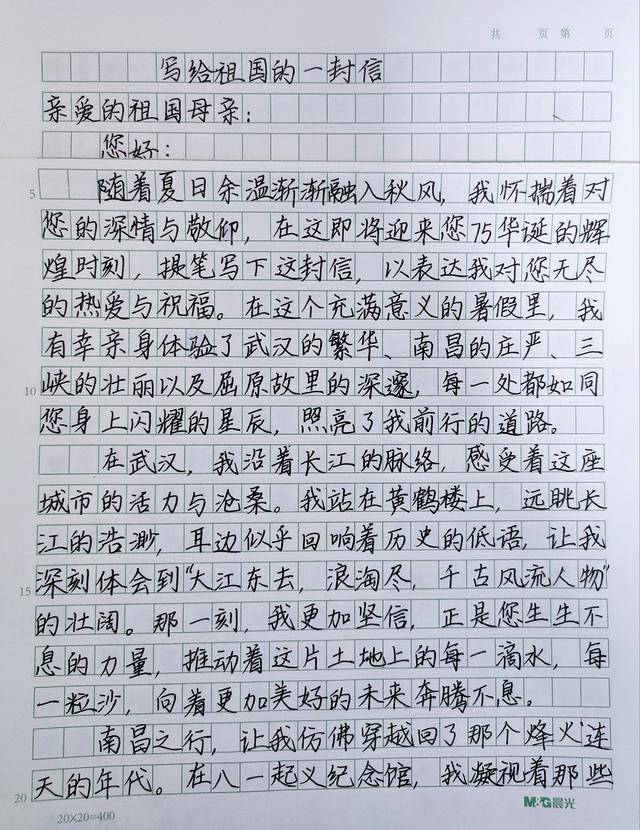 共 页 第 页
写给祖国的一封信
亲爱的祖国母亲：
您好：
5 随着夏日余温渐渐融入秋风，我怀揣着对
您的深情与敬仰，在这即将迎来您75华诞的辉
煌时刻，提笔写下这封信，以表达我对您无尽
的热爱与祝福。在这个充满意义的暑假里，我
有幸亲身体验了武汉的繁华、南昌的庄严、三
10 峡的壮丽以及屈原故里的深邃，每一处都如同
您身上闪耀的星辰，照亮了我前行的道路。
在武汉，我沿着长江的脉络，感受着这座
城市的活力与沧桑。我站在黄鹤楼上，远眺长
江的浩渺，耳边似乎回响着历史的低语，让我
15 深刻体会到“大江东去，浪淘尽，千古风流人物”
的壮阔。那一刻，我更加坚信，正是您生生不
息的力量，推动着这片土地上的每一滴水，每
一粒沙，向着更加美好的未来奔腾不息。
南昌之行，让我仿佛穿越回了那个烽火连
20 天的年代。在八一起义纪念馆，我凝视着那些
20×20=400
M&G晨光